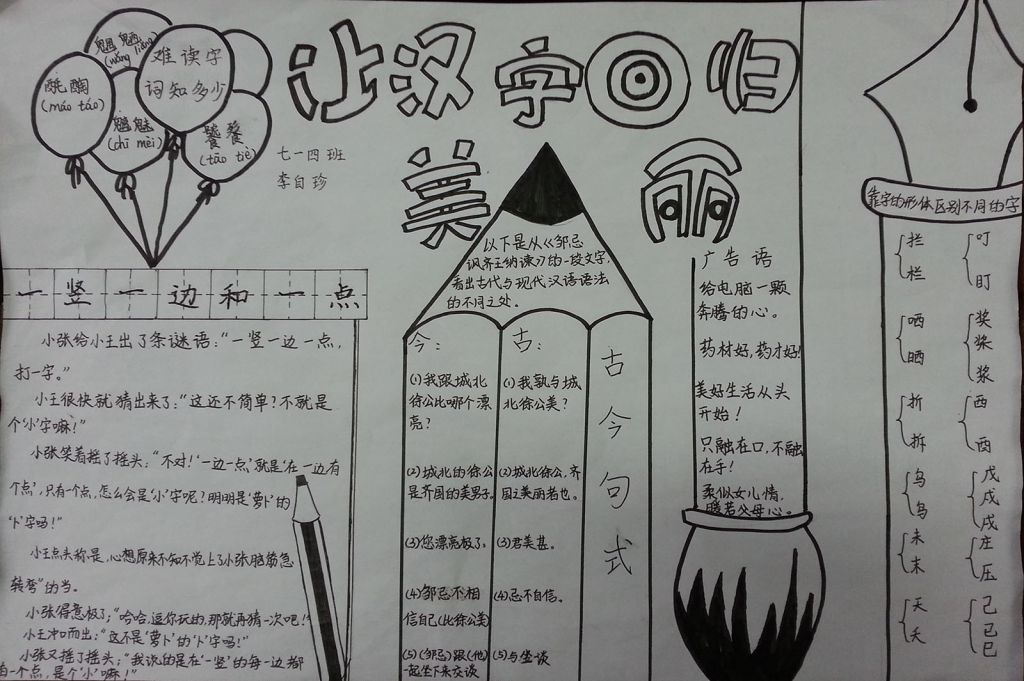 让汉字回归
美丽
魍魉
(wǎng liǎng)
酕醄
(máo táo)
难读字
词知多少
魑魅
(chī mèi)
饕餮
(tāo tiè)
七一四班
李自珍
一竖一边和一点
小张给小王出了条谜语：“一竖一边一点，
打一字。”
小王很快就猜出来了：“这还不简单？不就是
个‘小’字嘛！”
小张笑着摇了摇头：“不对！‘一边一点’就是‘在一边有
个点’，只有一个点，怎么会是‘小’字呢？明明是‘萝卜’的
‘卜’字吗！”
小王点头称是，心想原来不知不觉上了小张脑筋急
转弯”的当。
小张得意极了：“哈哈，逗你玩的，那就再猜一次吧！”
小王冲口而出：“这不是‘萝卜’的‘卜’字吗！”
小张又摇了摇头：“我说的是在‘一竖’的每一边都
有一个点，是个‘小’嘛！”
以下是从《邹忌
讽齐王纳谏》的一段文字，
看出古代与现代汉语语法
的不同之处。
今：
(1)我跟城北
徐公比哪个漂
亮？
(2)城北的徐公
是齐国的美男子
(3)您漂亮极了。
(4)邹忌不相
信自己(比徐公美)
(5)(邹忌)跟(他)
一起坐下来交谈
古：
(1)我孰与城
北徐公美？
(2)城北徐公，齐
国之美丽者也。
(3)君美甚。
(4)忌不自信。
(5)与坐谈
古今句式
广告语
给电脑一颗
奔腾的心。
药材好，药才好！
美好生活从头
开始！
只融在口，不融
在手！
柔似女儿情，
暖若父母心。
靠字的形体区别不同的字
拦
栏
叮
盯
哂
晒
奖
桨
浆
折
拆
西
酉
乌
鸟
戊
戌
戍
未
末
庄
压
天
夭
己
已
巳